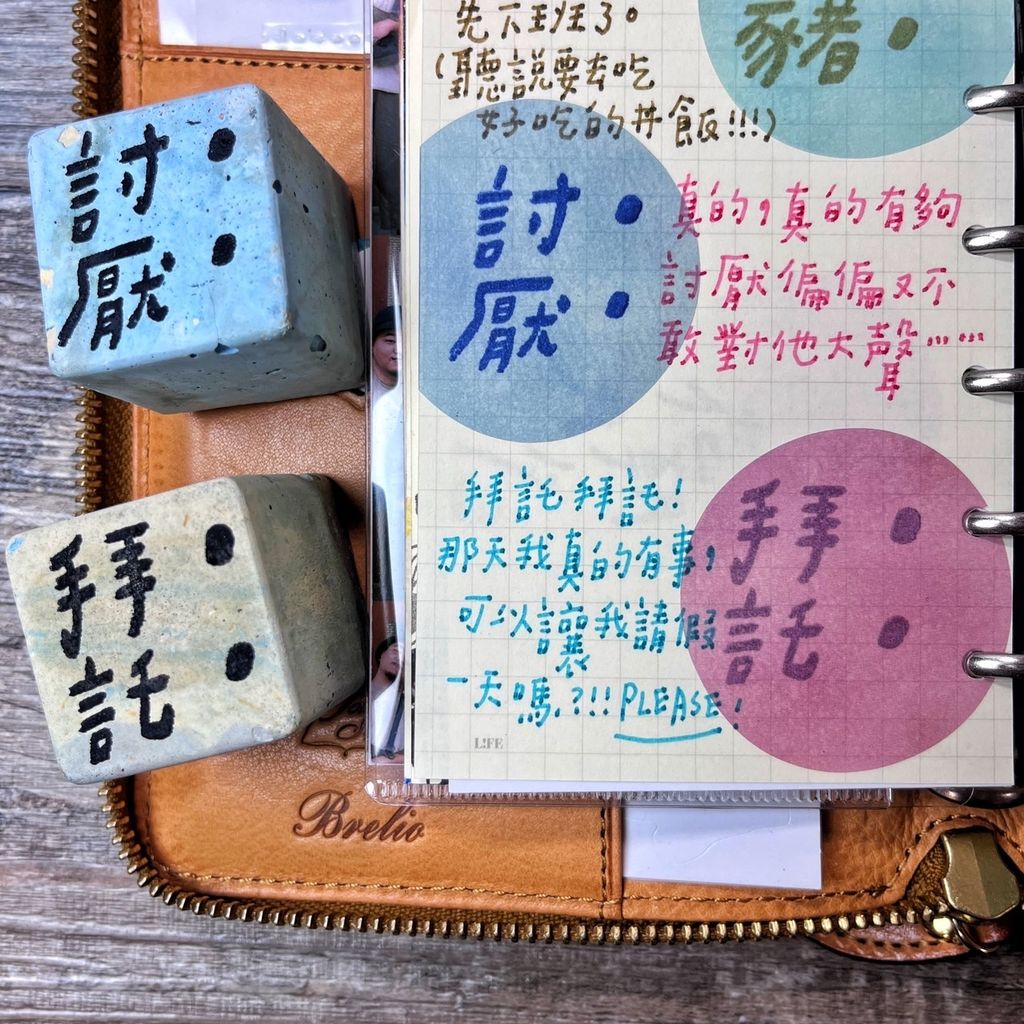 討
厭：
拜
託：
Brelio
先下班了。
(聽說要去吃
好吃的丼飯!!!)
豬
討
厭：
真的，真的有夠
討厭偏偏又不
敢對他大聲⋯⋯
拜拜託！
那天我真的有事，
可以讓我請假
一天嗎?!!! PLEASE!
拜
託：
L!FE